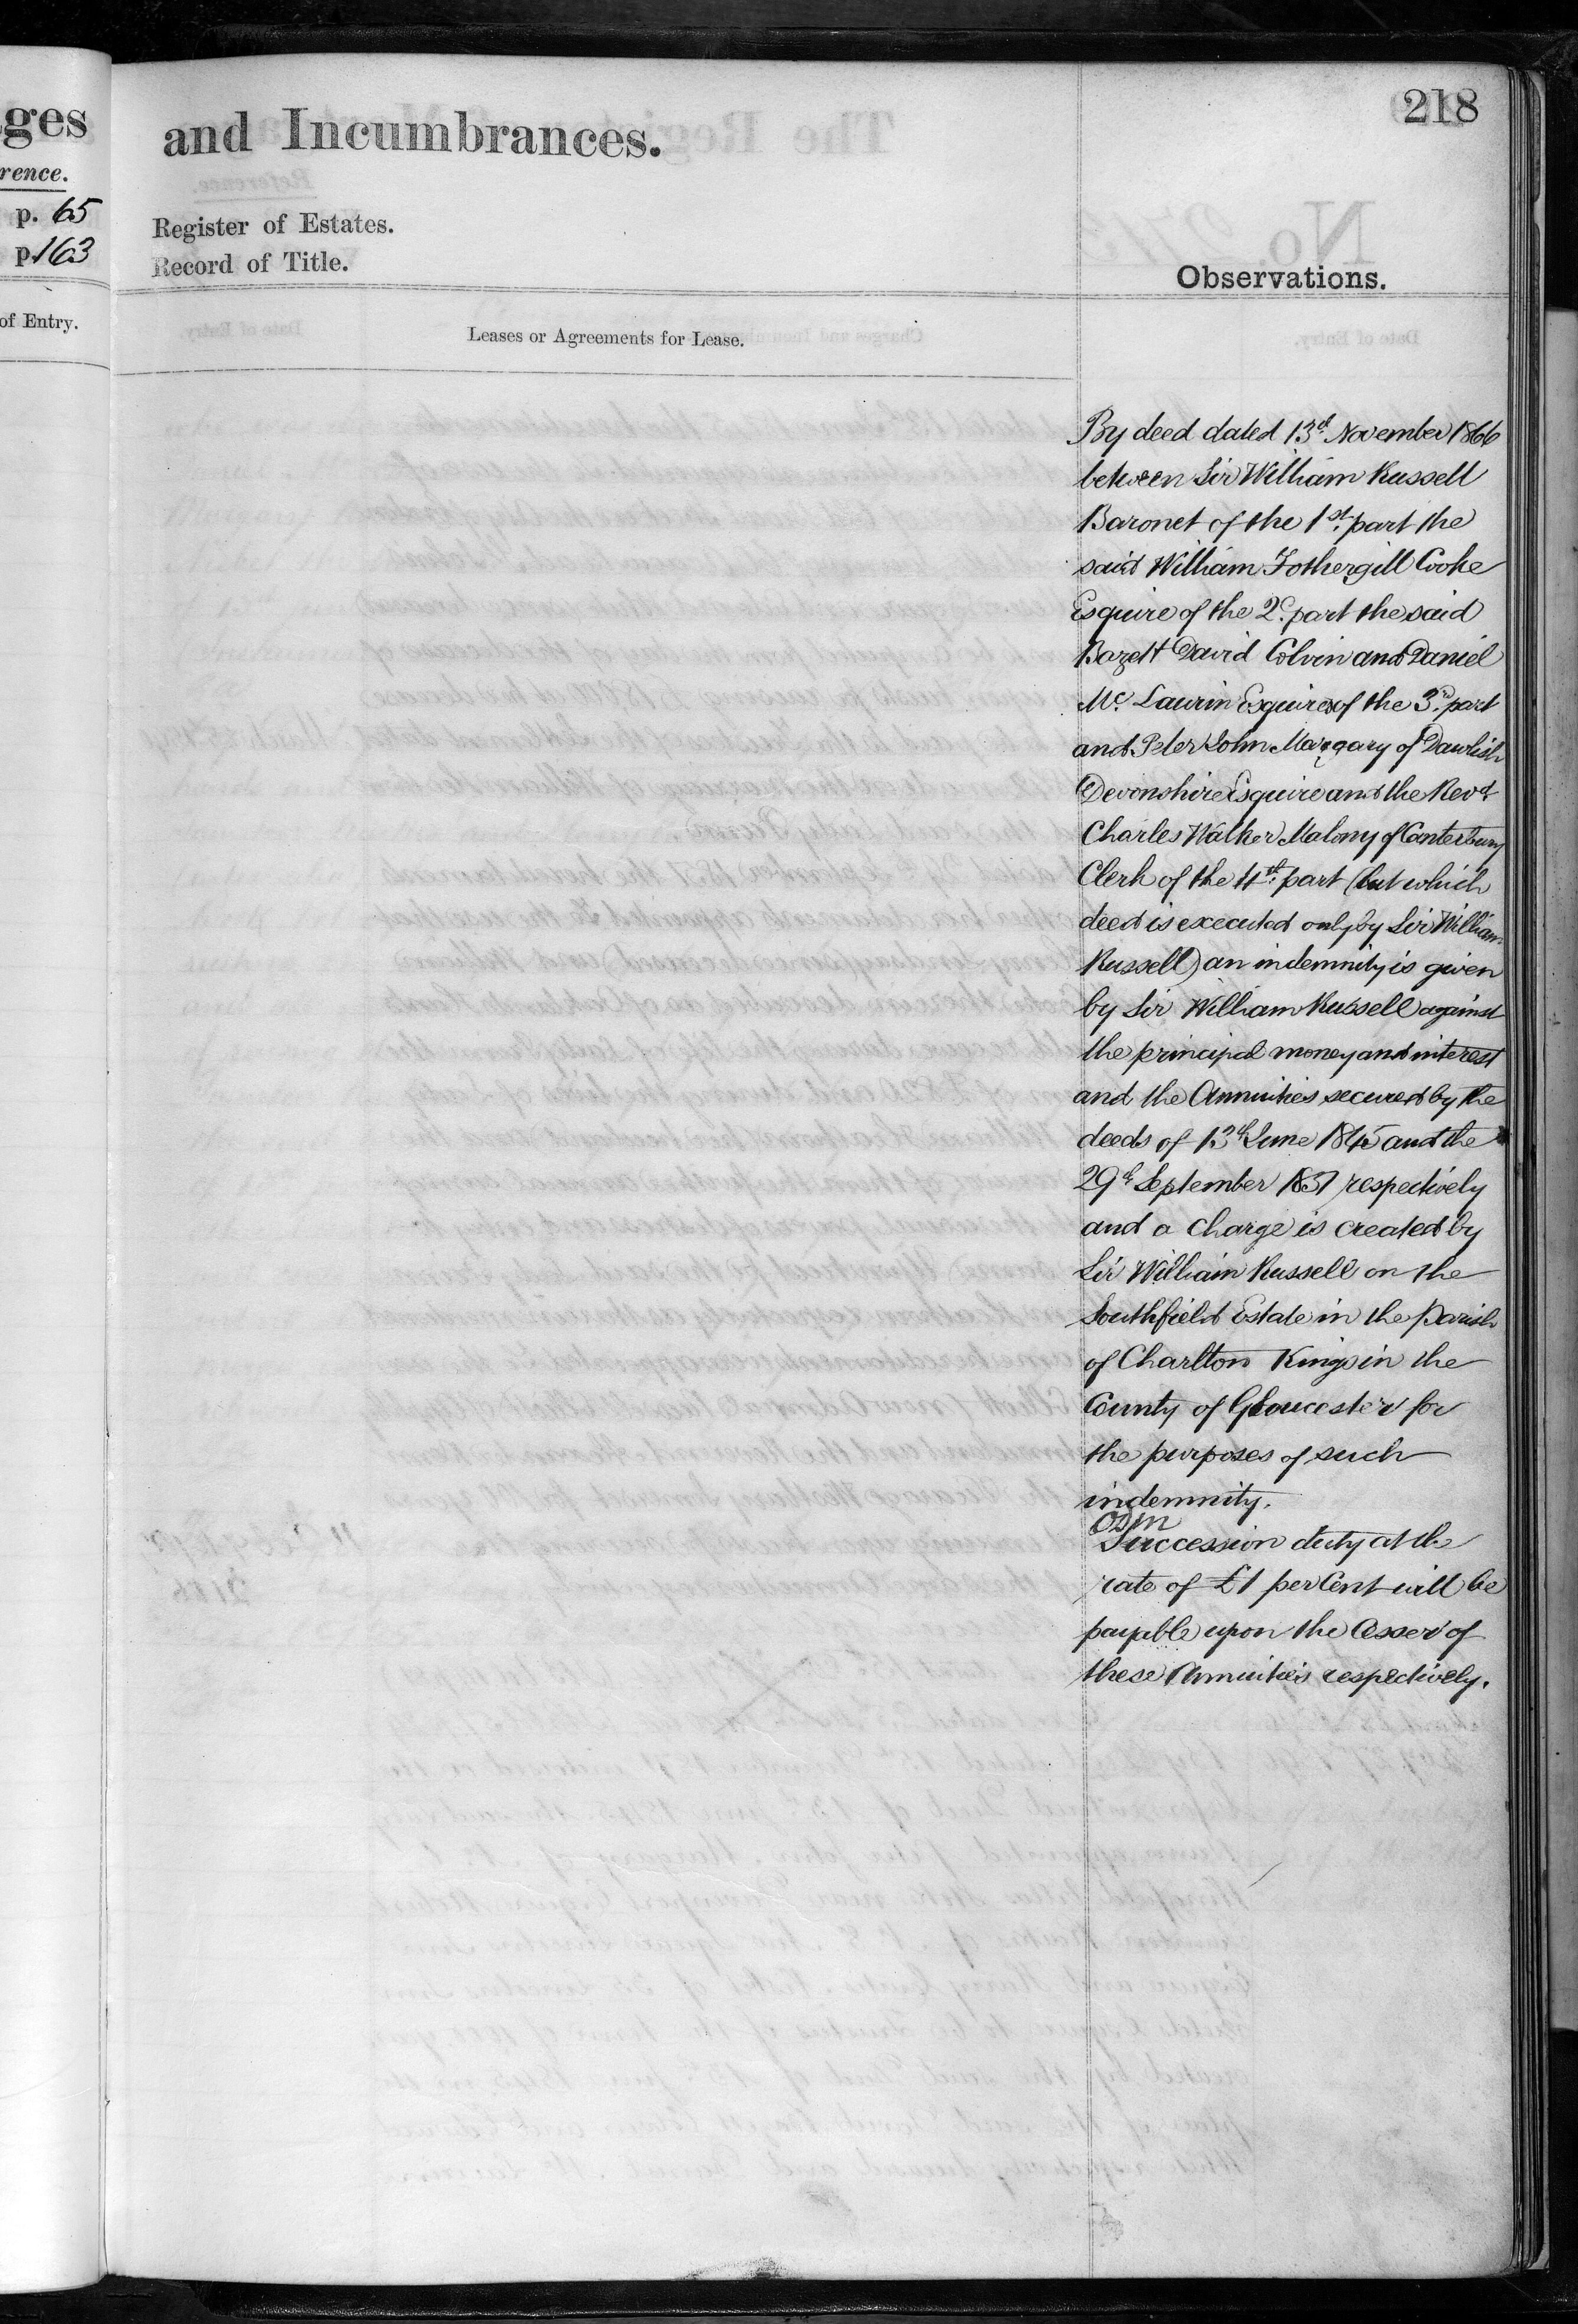 218
ges
and Incumbrances.
rence.
p. 65
Register of Estates.
p. 163
Record of Title.
Observations.
of Entry.
Leases or Agreements for Lease.
By deed dated 13th November 1866
between Sir William Russell
Baronet of the 1st. part the
said William Fothergill Cooke
Esquire of the 2d. part the said
Bazett David Colvin and Daniel
Mc. Laurin Esquires of the 3rd. part
and Peter John Margary of Dawlish
Devonshire Esquire and the Revd
Charles Walker Malony of Canterbury
Clerk of the 4th. part (but which
deed is executed only by Sir William
Russell) an indemnity is given
by Sir William Russell against
the principal money and interest
and the Annuities secured by the
deeds of 13th June 1845 and the
29th September 1857 respectively
and a Charge is created by
Sir William Russell on the
Southfield Estate in the Parish
of Charlton Kings in the
County of Gloucester for
the purposes of such
indemnity.
Succession duty at the
rate of £1 per Cent will be
payable upon the Cesser of
these Annuities respectively.